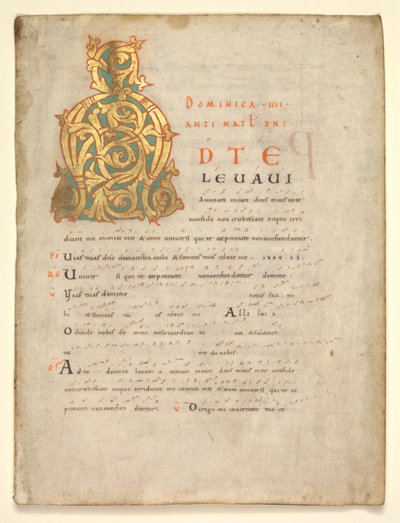 DOMINICA · IIII ·
ANTI NAT DNI
A D T E
LEUAUI
Animam meam deus meus in te
confido non erubescam neque irri
deant me inimici mei &enim uniuersi qui te expectant non confundentur.
PS Uias tuas dne demonstra mihi & semitas tuas edoce me . EUOUAE.
Uniuer si qui te expectant non confundentur domine
V Uias tuas domine notas fac mi
hi & semitas tu as edoce me Alle luia
Ostende nobis domine misericordiam tu am & salutare
tu um da nobis
OF Ad te domine leuaui animam meam deus meus in te confido
non erubescam neque irrideant me inimici mei &enim uniuersi qui te ex
pectant non confun dentur. V Dirige me in ueritate tua et